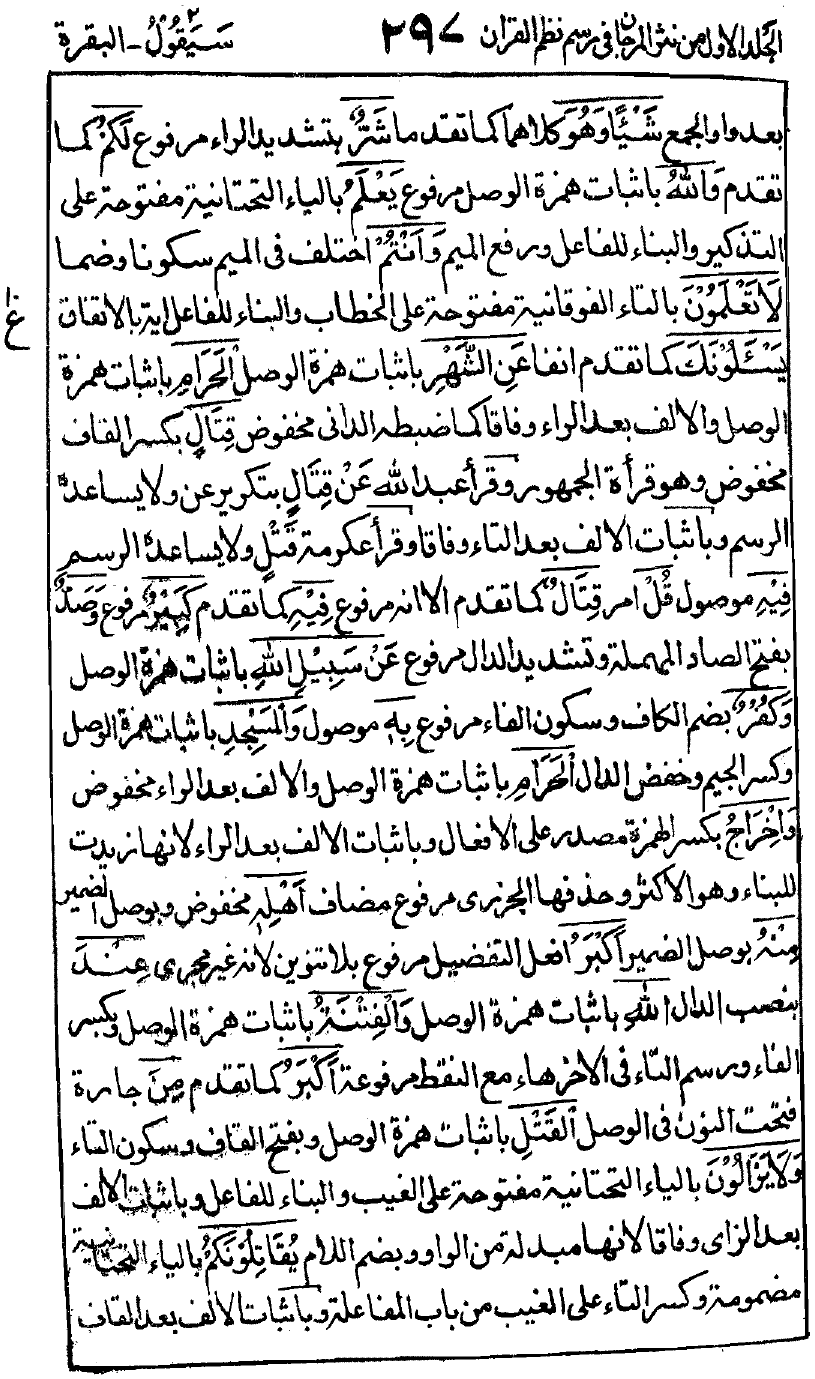 الجلد الاول من نثر المرجان فى رسم نظم القران ٢٩٧ سَيَقُولُ ٢ - البقرة
بعد واو الجمع شَيْـًٔا وَهُوَ كلاهما كما تقدم ما شَرٌّ بتشديد الراء مرفوع لَكُمْ كما
تقدم وَاللهُ باثبات همزة الوصل مرفوع يَعْلَمُ بالياء التحتانية مفتوحة على
التذكير والبناء للفاعل ورفع الميم وَاَنْتُمْ اختلف فى الميم سكونا وضما
لَا تَعْلَمُوْنَ بالتاء الفوقانية مفتوحة على الخطاب والبناء للفاعل اية بالاتفاق
غ
يَسْـَٔلُوْنَكَ كما تقدم انفا عَنِ الشَّهْرِ باثبات همزة الوصل الْحَرَامِ باثبات همزة
الوصل والالف بعد الراء وفاقا كما ضبطه الدانى مخفوض قِتَالٍ بكسر القاف
مخفوض وهو قرأة الجمهور وقرأ عبد الله عَنْ قِتَالٍ بتكرير عن ولا يساعده
الرسم وباثبات الالف بعد التاء وفاقا وقرأ عكرمة قَتْلٍ ولا يساعده الرسم
فِيْهِ موصول قُلْ امر قِتَالٌ كما تقدم الا انه مرفوع فِيْهِ كما تقدم كَبِيْرٌ مرفوع وَصَدٌّ
بفتح الصاد المهملة وتشديد الدال مرفوع عَنْ سَبِيْلِ اللهِ باثبات همزة الوصل
وَكُفْرٌ بضم الكاف وسكون الفاء مرفوع بِهٖ موصول وَالْمَسْجِدِ باثبات همزة الوصل
وكسر الجيم وخفض الدال الْحَرَامِ باثبات همزة الوصل والالف بعد الراء مخفوض
وَاِخْرَاجُ بكسر الهمزة مصدر على الافعال وباثبات الالف بعد الراء لانها زيدت
للبناء وهو الاكثر وحذفها الجزرى مرفوع مضاف اَهْلِهٖ مخفوض وبوصل الضمير
مِنْهُ بوصل الضمير اَكْبَرُ افعل التفضيل مرفوع بلا تنوين لانه غير مجرى عِنْدَ
بنصب الدال اللهِ باثبات همزة الوصل وَالْفِتْنَةُ باثبات همزة الوصل وبكسر
الفاء وبرسم التاء فى الاخر هاء مع النقط مرفوعة اَكْبَرُ كما تقدم مِنَ جارة
فتحت النون فى الوصل الْقَتْلِ باثبات همزة الوصل وبفتح القاف وسكون التاء
وَلَا يَزَالُوْنَ بالياء التحتانية مفتوحة على الغيب والبناء للفاعل وباثبات الالف
بعد الزاى وفاقا لانها مبدلة من الواو وبضم اللام يُقَاتِلُوْنَكُمْ بالياء التحتانية
مضمومة وكسر التاء على الغيب من باب المفاعلة وباثبات الالف بعد القاف